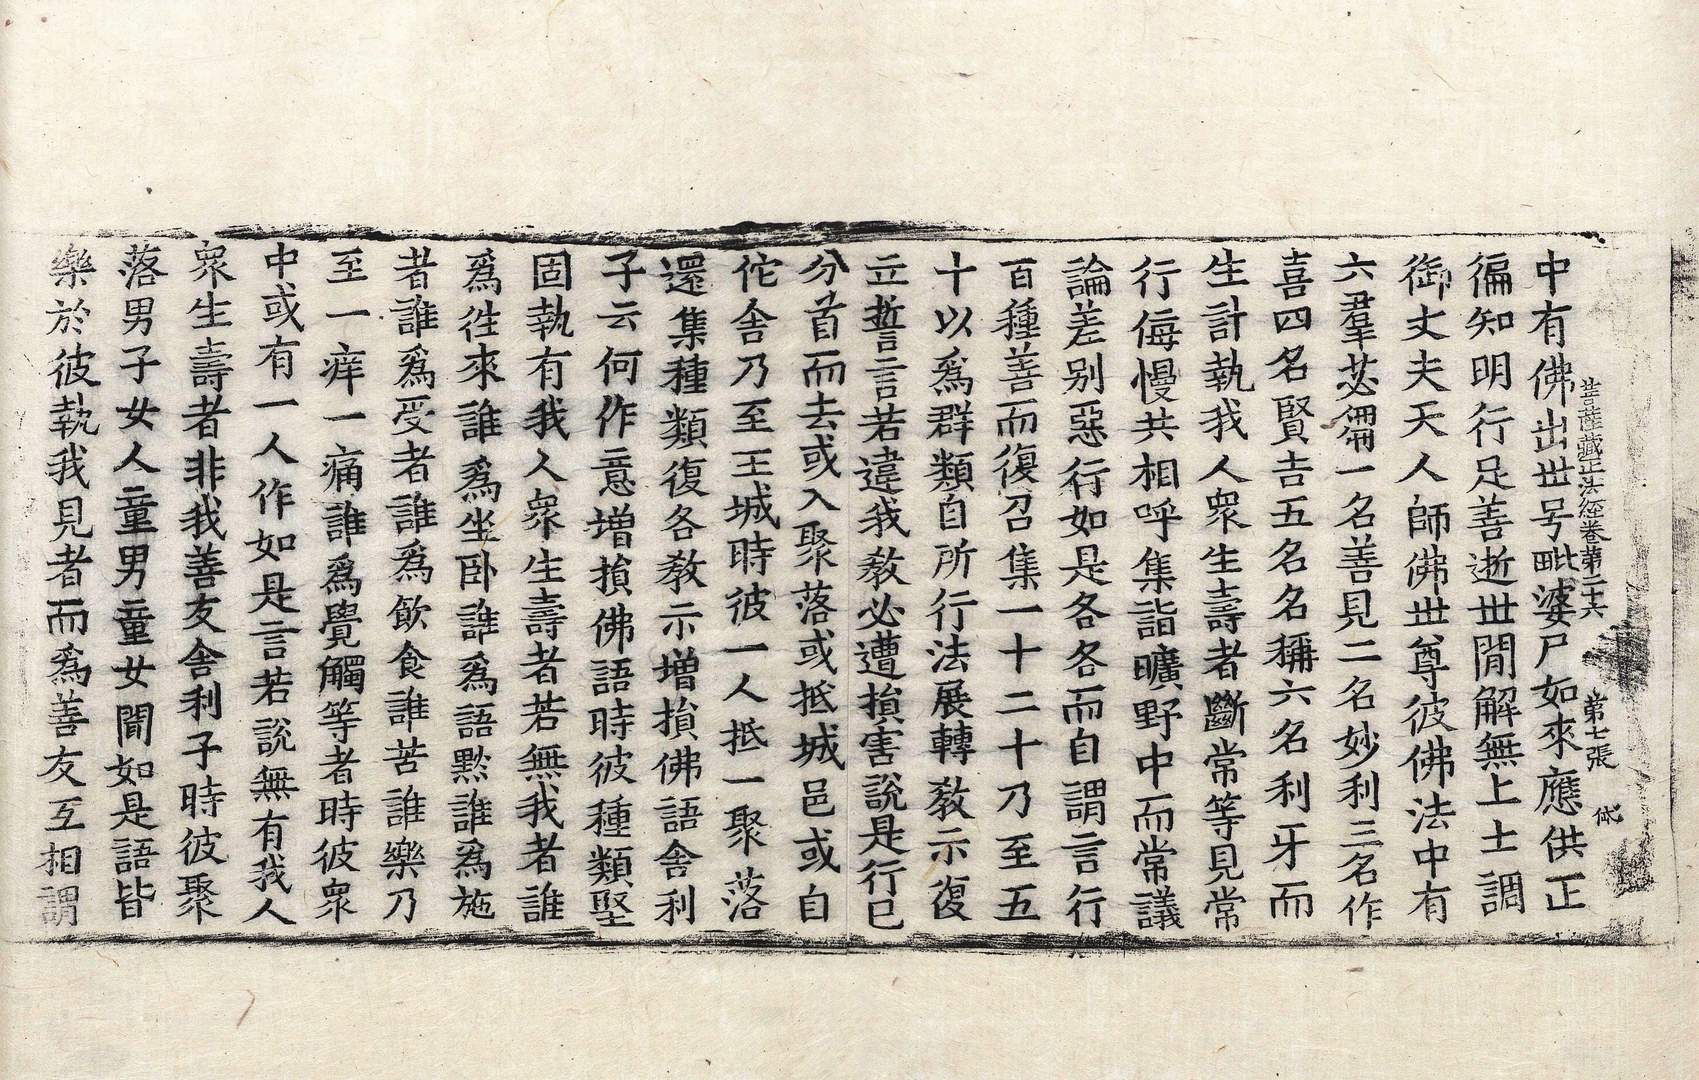 菩薩藏正法經卷第二十六　第七張　𢘆
中有佛出世号毗婆尸如來應供正
徧知明行足善逝世閒解無上士調
御丈夫天人師佛世尊彼佛法中有
六羣苾芻一名善見二名妙利三名作
喜四名賢吉五名名稱六名利牙而
生計執我人衆生壽者斷常等見常
行侮慢共相呼集詣曠野中而常議
論差別惡行如是各各而自謂言行
百種善而復召集一十二十乃至五
十以爲群類自所行法展轉教示復
立誓言若違我教必遭損害說是行已
分首而去或入聚落或抵城邑或自
佗舍乃至王城時彼一人抵一聚落
還集種類復各教示增損佛語舍利
子云何作意增損佛語時彼種類堅
固執有我人衆生壽者若無我者誰
爲徃來誰爲坐卧誰爲語默誰爲施
者誰爲受者誰爲飲食誰苦誰樂乃
至一痒一痛誰爲覺觸等者時彼衆
中或有一人作如是言若說無有我人
衆生壽者非我善友舍利子時彼聚
落男子女人童男童女聞如是語皆
樂於彼執我見者而爲善友互相謂